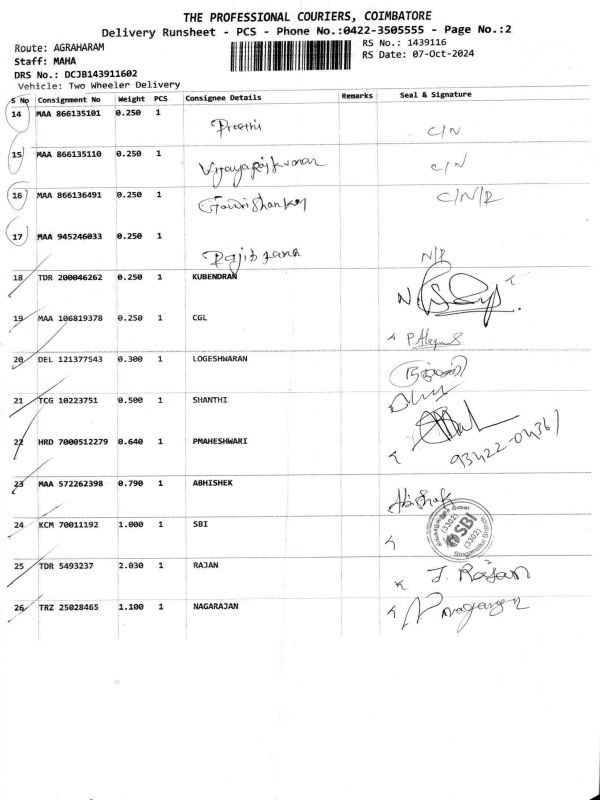 THE PROFESSIONAL COURIERS, COIMBATORE
Delivery Runsheet - PCS - Phone No.:0422-3505555 - Page No.:2
Route: AGRAHARAM RS No.: 1439116
Staff: MAHA RS Date: 07-Oct-2024
DRS No.: DCJB143911602
Vehicle: Two Wheeler Delivery
S No Consignment No Weight PCS Consignee Details Remarks Seal & Signature
14 MAA 866135101 0.250 1
Preethi C/N
15 MAA 866135110 0.250 1
Vijayarajkumar C/N
16 MAA 866136491 0.250 1
Gowrishankar C/N/R
17 MAA 945246033 0.250 1
Rajib Jana N/R
18 TDR 200046262 0.250 1 KUBENDRAN
19 MAA 106819378 0.250 1 CGL
20 DEL 121377543 0.300 1 LOGESHWARAN
21 TCG 10223751 0.500 1 SHANTHI
22 HRD 7000512279 0.640 1 PMAHESHWARI
93422-04361
23 MAA 572262398 0.790 1 ABHISHEK
Abishek
24 KCM 70011192 1.000 1 SBI
SBI
(3302)
(3302)
Singanallur Branch
25 TDR 5493237 2.030 1 RAJAN
J. Rajan
26 TRZ 25028465 1.100 1 NAGARAJAN